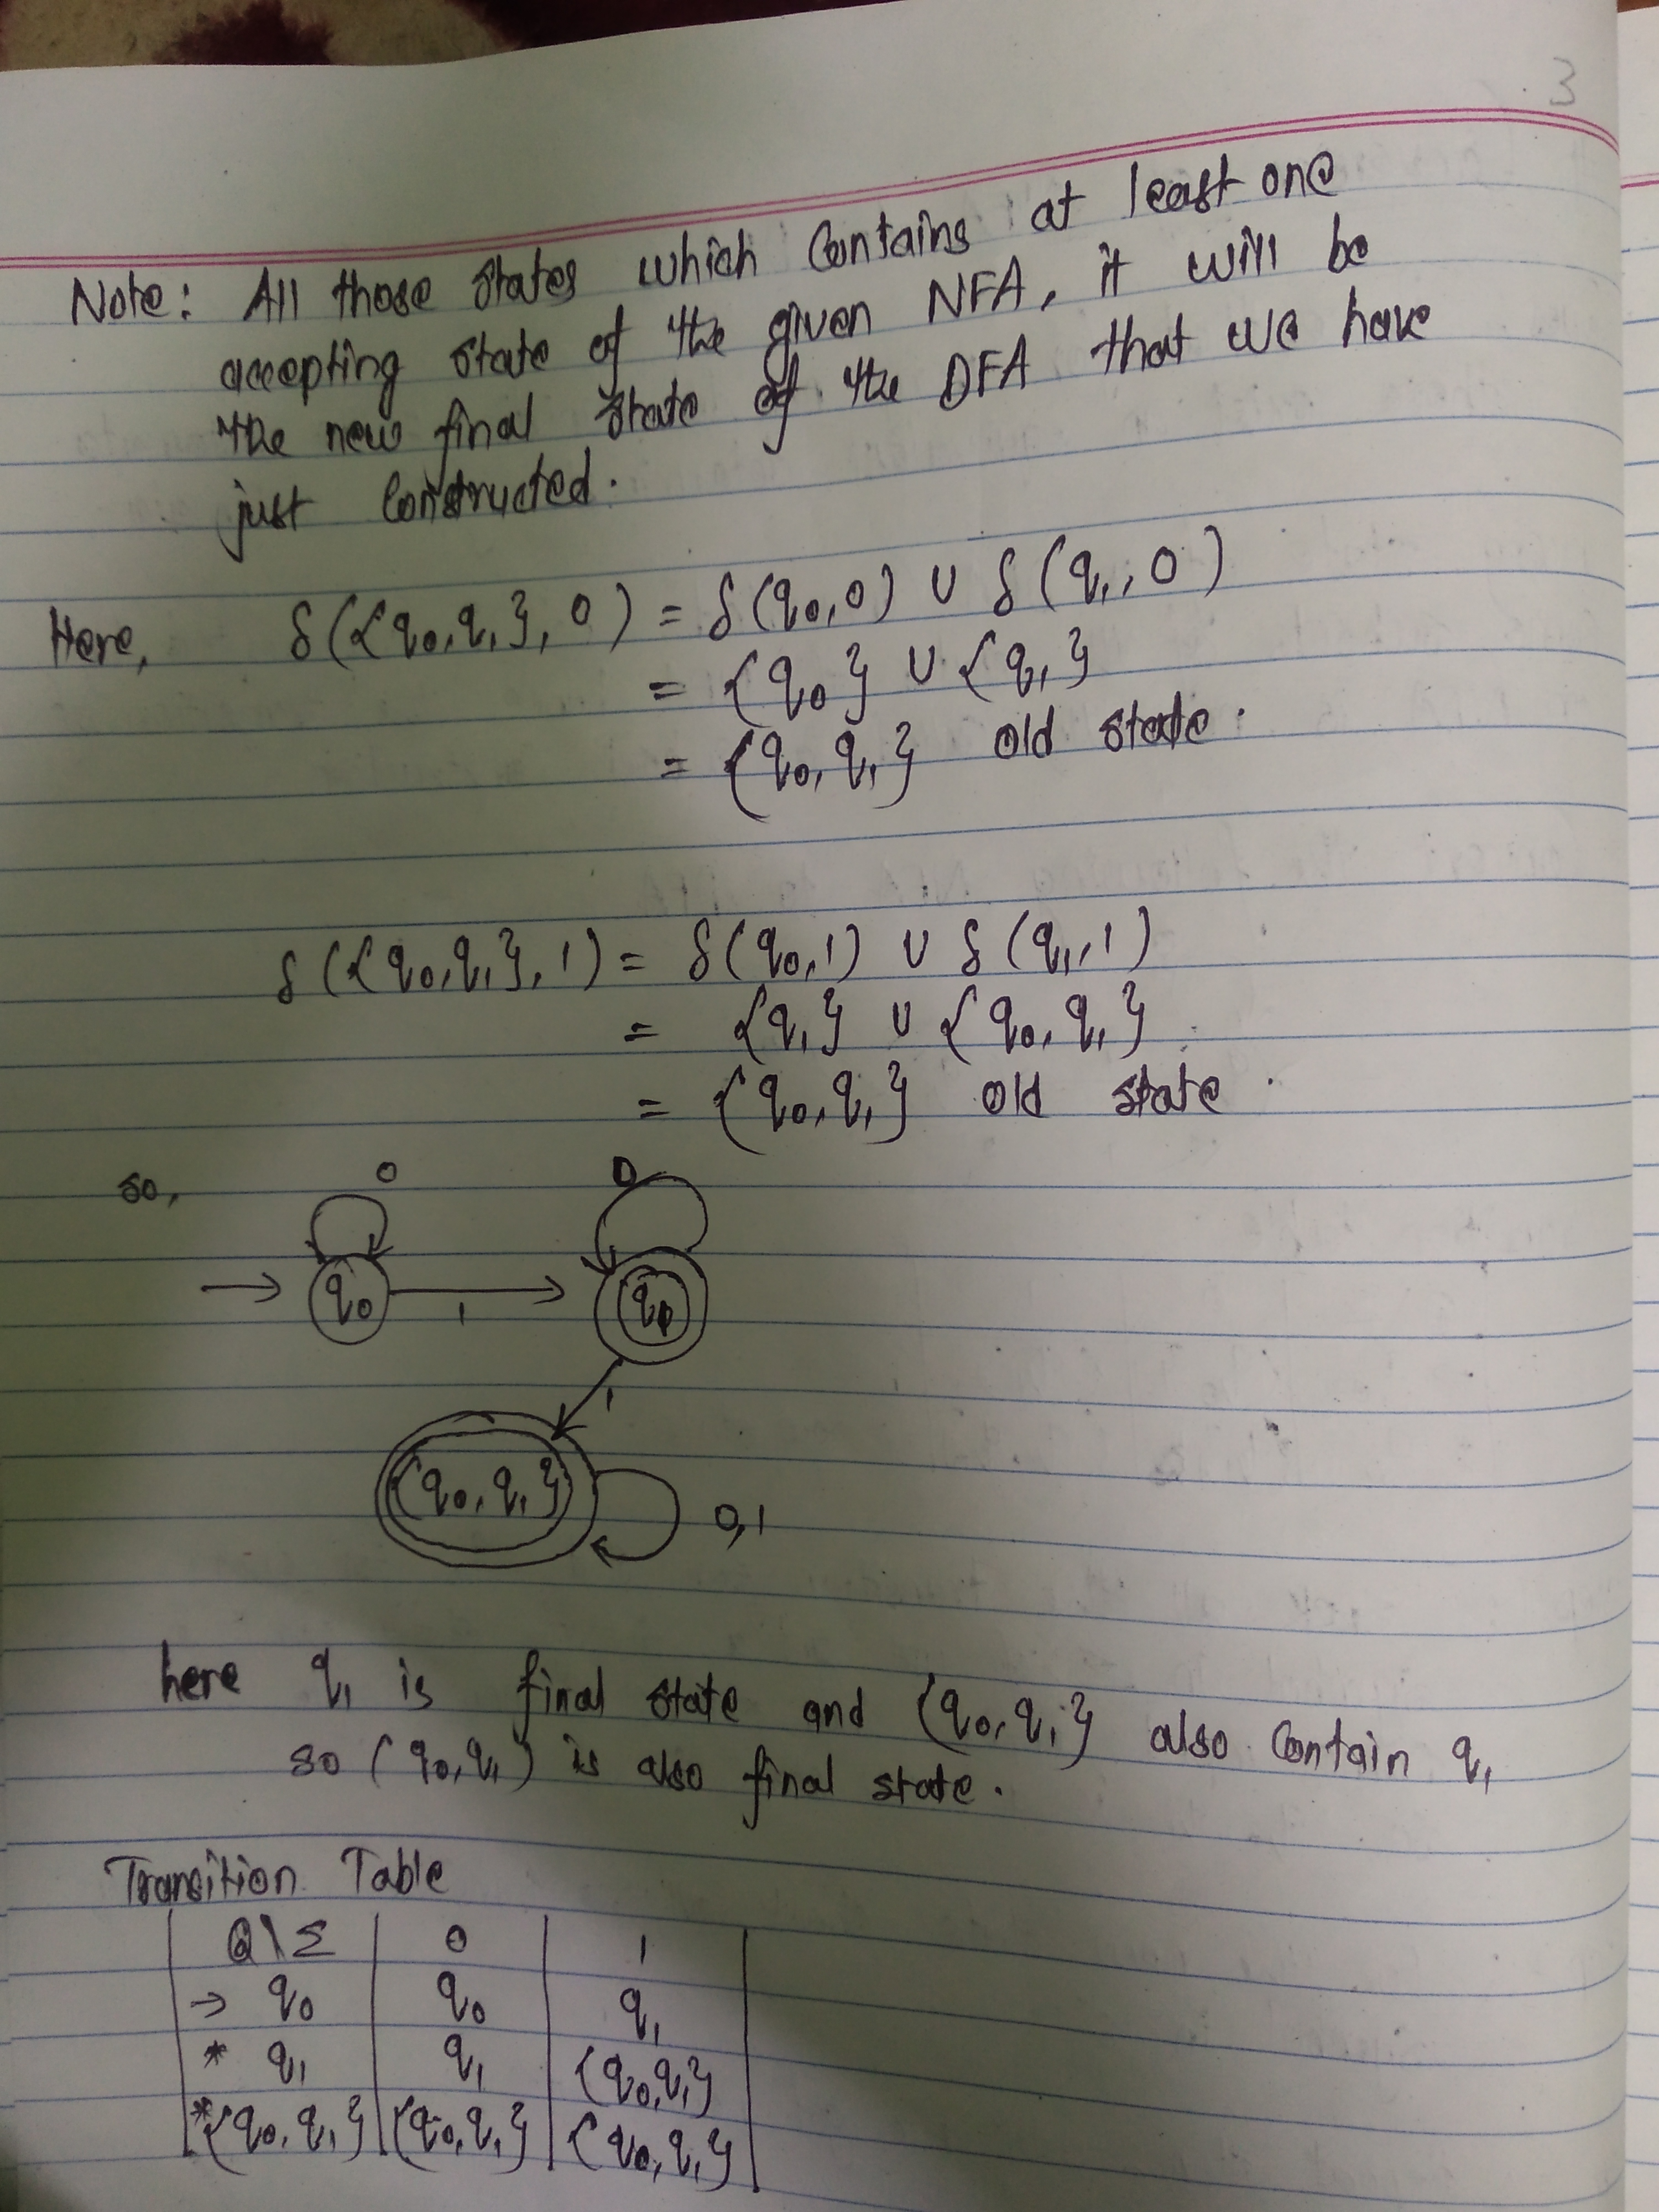 3
Note: All those states which contains at least one
accepting state of the given NFA, it will be
the new final state of the DFA that we have
just constructed.
Here, δ({q₀,q₁},0) = δ(q₀,0) ∪ δ(q₁,0)
= {q₀} ∪ {q₁}
= {q₀,q₁} old state.
δ({q₀,q₁},1) = δ(q₀,1) ∪ δ(q₁,1)
= {q₁} ∪ {q₀,q₁}
= {q₀,q₁} old state.
so,
0 0
q₀ 1 q₁
1
{q₀,q₁} 0,1
here q₁ is final state and {q₀,q₁} also contain q₁
so (q₀,q₁) is also final state.
Transition Table
Q\Σ 0 1
→ q₀ q₀ q₁
* q₁ q₁ {q₀,q₁}
*{q₀,q₁} {q₀,q₁} {q₀,q₁}